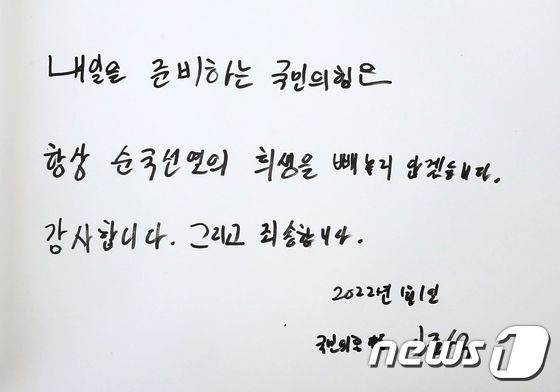 내일을 준비하는 국민의힘은
항상 순국선열의 희생을 빼놓지 않겠습니다.
감사합니다. 그리고 죄송합니다.
2022년 1월 1일
국민의힘
news1